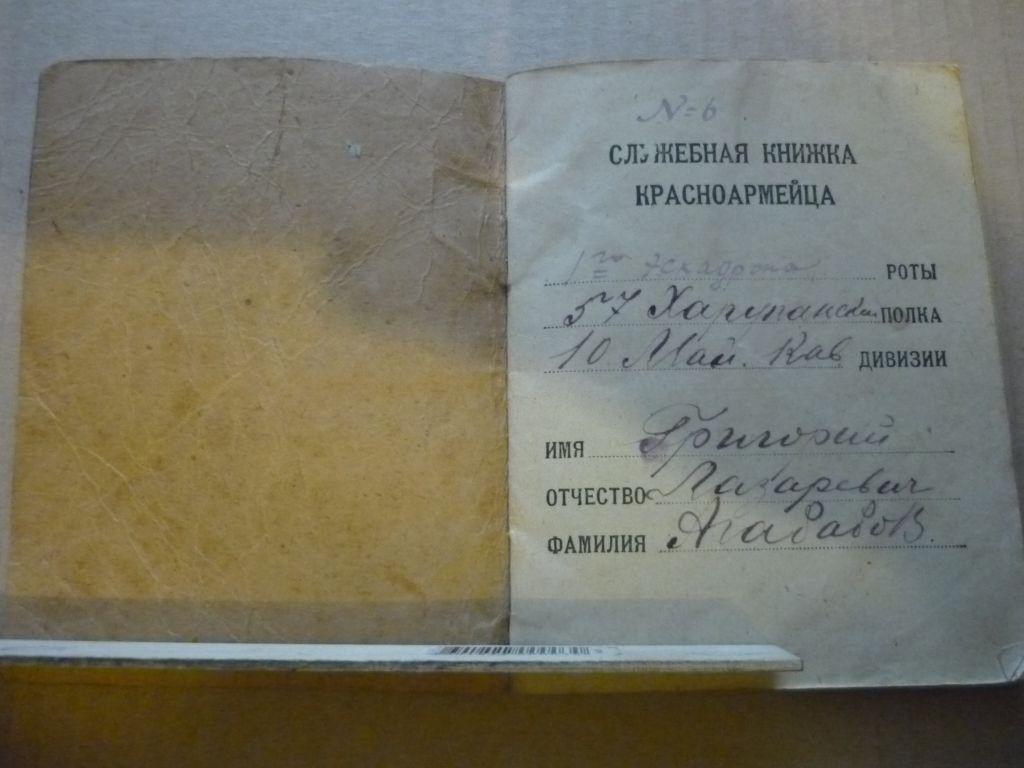 № 6
СЛУЖЕБНАЯ КНИЖКА
КРАСНОАРМЕЙЦА
1го эскадрона РОТЫ
57 ПОЛКА
10 Май. Кав ДИВИЗИИ
ИМЯ Григорий
ОТЧЕСТВО Лазаревич
ФАМИЛИЯ Агабабов